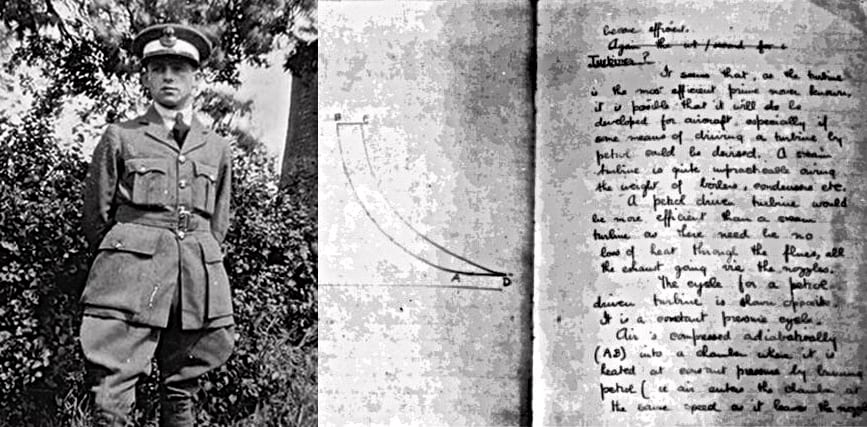 B C
A
D
Again the
Turbines?
It seems that, as the turbine
is the most efficient prime mover known,
it is possible that it will be
developed for aircraft, especially if
some means of driving a turbine by
petrol could be devised. A steam
turbine is quite impracticable owing
the weight of boilers, condensers etc.
A petrol driven turbine would
be more efficient than a steam
turbine as there need be no
loss of heat through the flues, all
the exhaust going via the nozzles.
The cycle for a petrol
driven turbine is shown opposite.
It is a constant pressure cycle.
Air is compressed adiabatically
(AB) into a chamber where it is
heated at constant pressure by burning
petrol (ie air enters the chamber at
the same speed as it leaves the